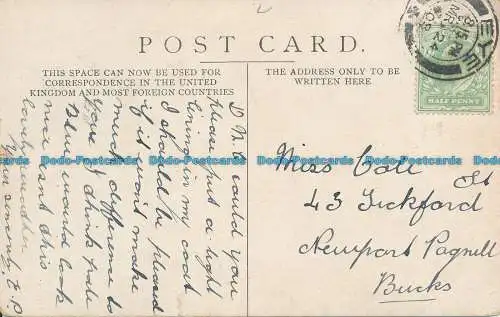 2
POST CARD.
THIS SPACE CAN NOW BE USED FOR
CORRESPONDENCE IN THE UNITED
KINGDOM AND MOST FOREIGN COUNTRIES
THE ADDRESS ONLY TO BE
WRITTEN HERE.
EYE
HALF PENNY
could you
please put a light
lining in my coat
I should be pleased
if it won't make
much difference to
you. I think pale
Blue would look
nice isn't this
lovely weather
Yours sincerely E. P.
Miss Cole
43 Tickford St
Newport Pagnell
Bucks
Dodo-Postcards Dodo-Postcards Dodo-Postcards Dodo-Postcards